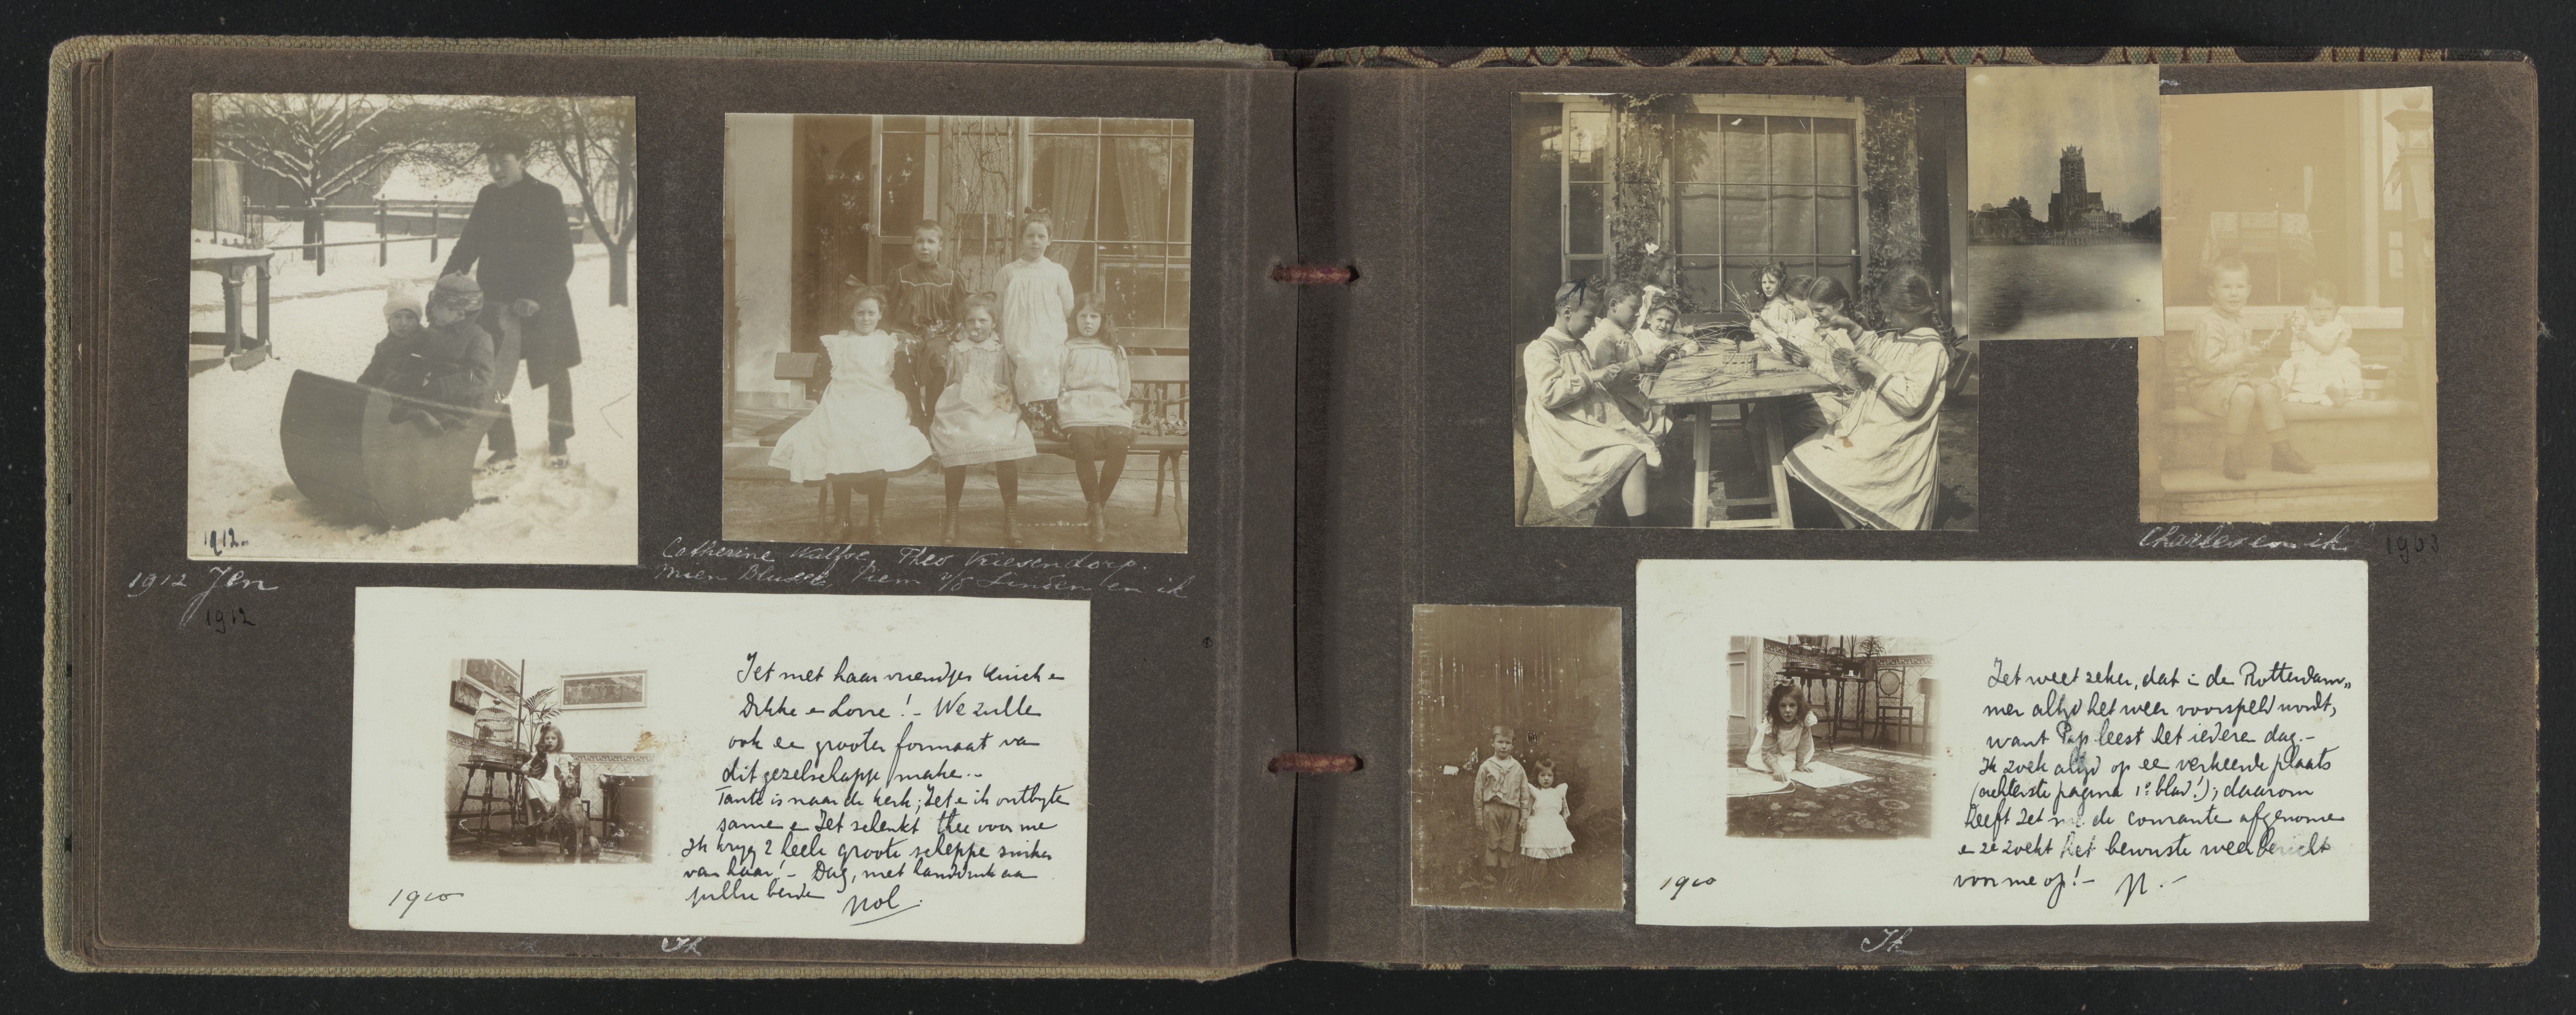 1912.
1912 Jen
1912
Catherine Wulfse, Theo Vriesendorp.
Mien Blussé, Piem v/d Linden en ik
Jet met haar vriendjes en
Dikke en Lorre! - We zulle
ook ee grooter formaat va
dit gezelschapje make. -
Tante is naar de kerk; Jet e ik ontbijte
same e Jet schenkt thee voor me
Ik kryg 2 heele groote scheppe suiker
van haar! - Dag, met handdruk aa
jullie beide Nol.
1910
Ik
Charles en ik 1903
Jet weet zeker, dat i de Rotterdam„
mer altyd het weer voorspeld wordt,
want Pap leest het iedere dag. -
Ik zoek altyd op ee verkeerde plaats
(achterste pagina 1e blad!); daarom
heeft Jet me de courante afgenome
e ze zoekt het bewuste weerbericht
voor me op! - N. -
1910
Ik